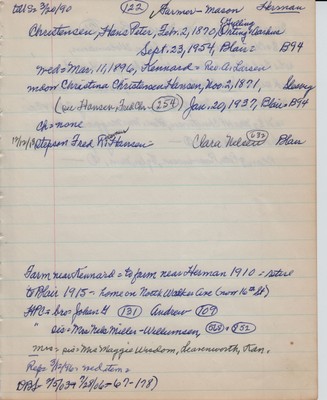 to US 3/20/90 (122) Farmer-Mason Herman
Christensen, Hans Peter, Feb. 2, 1870, Denmark
Sept. 23, 1954, Blair = B94
wed = Mar. 11, 1896, Kennard = Rev A. Larsen
mdow Christina Christensen Hansen, Nov. 2, 1871,
(see Hansen, Fred Chr. (254) Jan. 20, 1937, Blair = B94
ch = none
Stepson Fred R. Hansen = Clara Nielsen (632) Blair
Farm near Kennard = to farm near Herman 1910 = retire
to Blair 1915 - home on North Walker Ave (now 16th St)
HPC = bro = Johan G (131) Andrew (109)
" sis = Mrs Nels Miller - Williamson (568) & (852)
Mrs = sis = Mrs Maggie Wisdom, Leavenworth, Kan.
Rep = 3/12/46 = wed item =